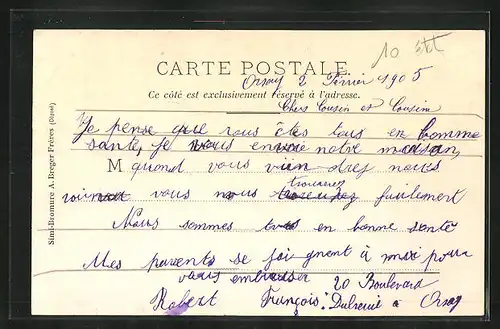 10 
CARTE POSTALE
Orsay 2 Février 1905
Ce côté est exclusivement réservé à l'adresse.
Chers Cousin et Cousine
Je pense que vous êtes tous en bonne
santé, je vous envoie notre maison,
M quand vous viendrez nous
voir vous nous trouverez facilement
Nous sommes tous en bonne santé
Mes parents se joignent à moi pour
vous embrasser
20 Boulevard
Robert François Dubreuil à Orsay
Simi-Bromure A. Breger Frères